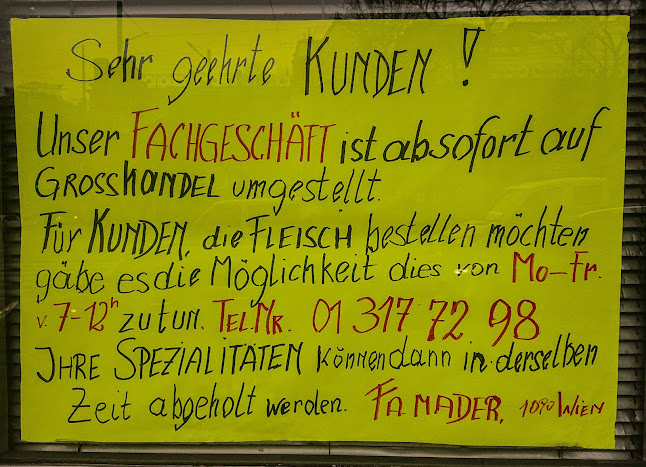 Sehr geehrte KUNDEN !
UNSER FACHGESCHÄFT ist absofort auf
GROSSHANDEL umgestellt.
Für KUNDEN, die FLEISCH bestellen möchten
gäbe es die Möglichkeit dies von Mo-Fr.
v. 7-12h zu tun. TEL.NR. 01 317 72 98
IHRE SPEZIALITÄTEN können dann in derselben
Zeit abgeholt werden. FA MADER, 1090 WIEN